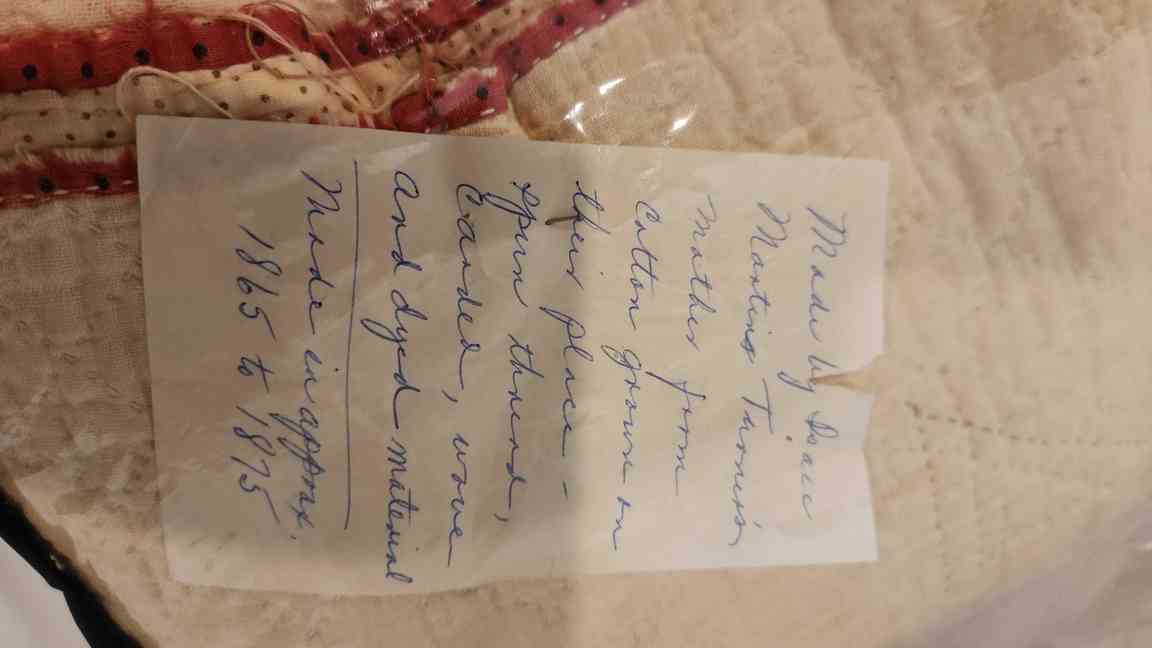 Made by Isaac
Martin Turner's
Mother from
Cotton grown on
their place -
Spun thread,
Carded, wove
and dyed material
Made in approx.
1865 to 1875